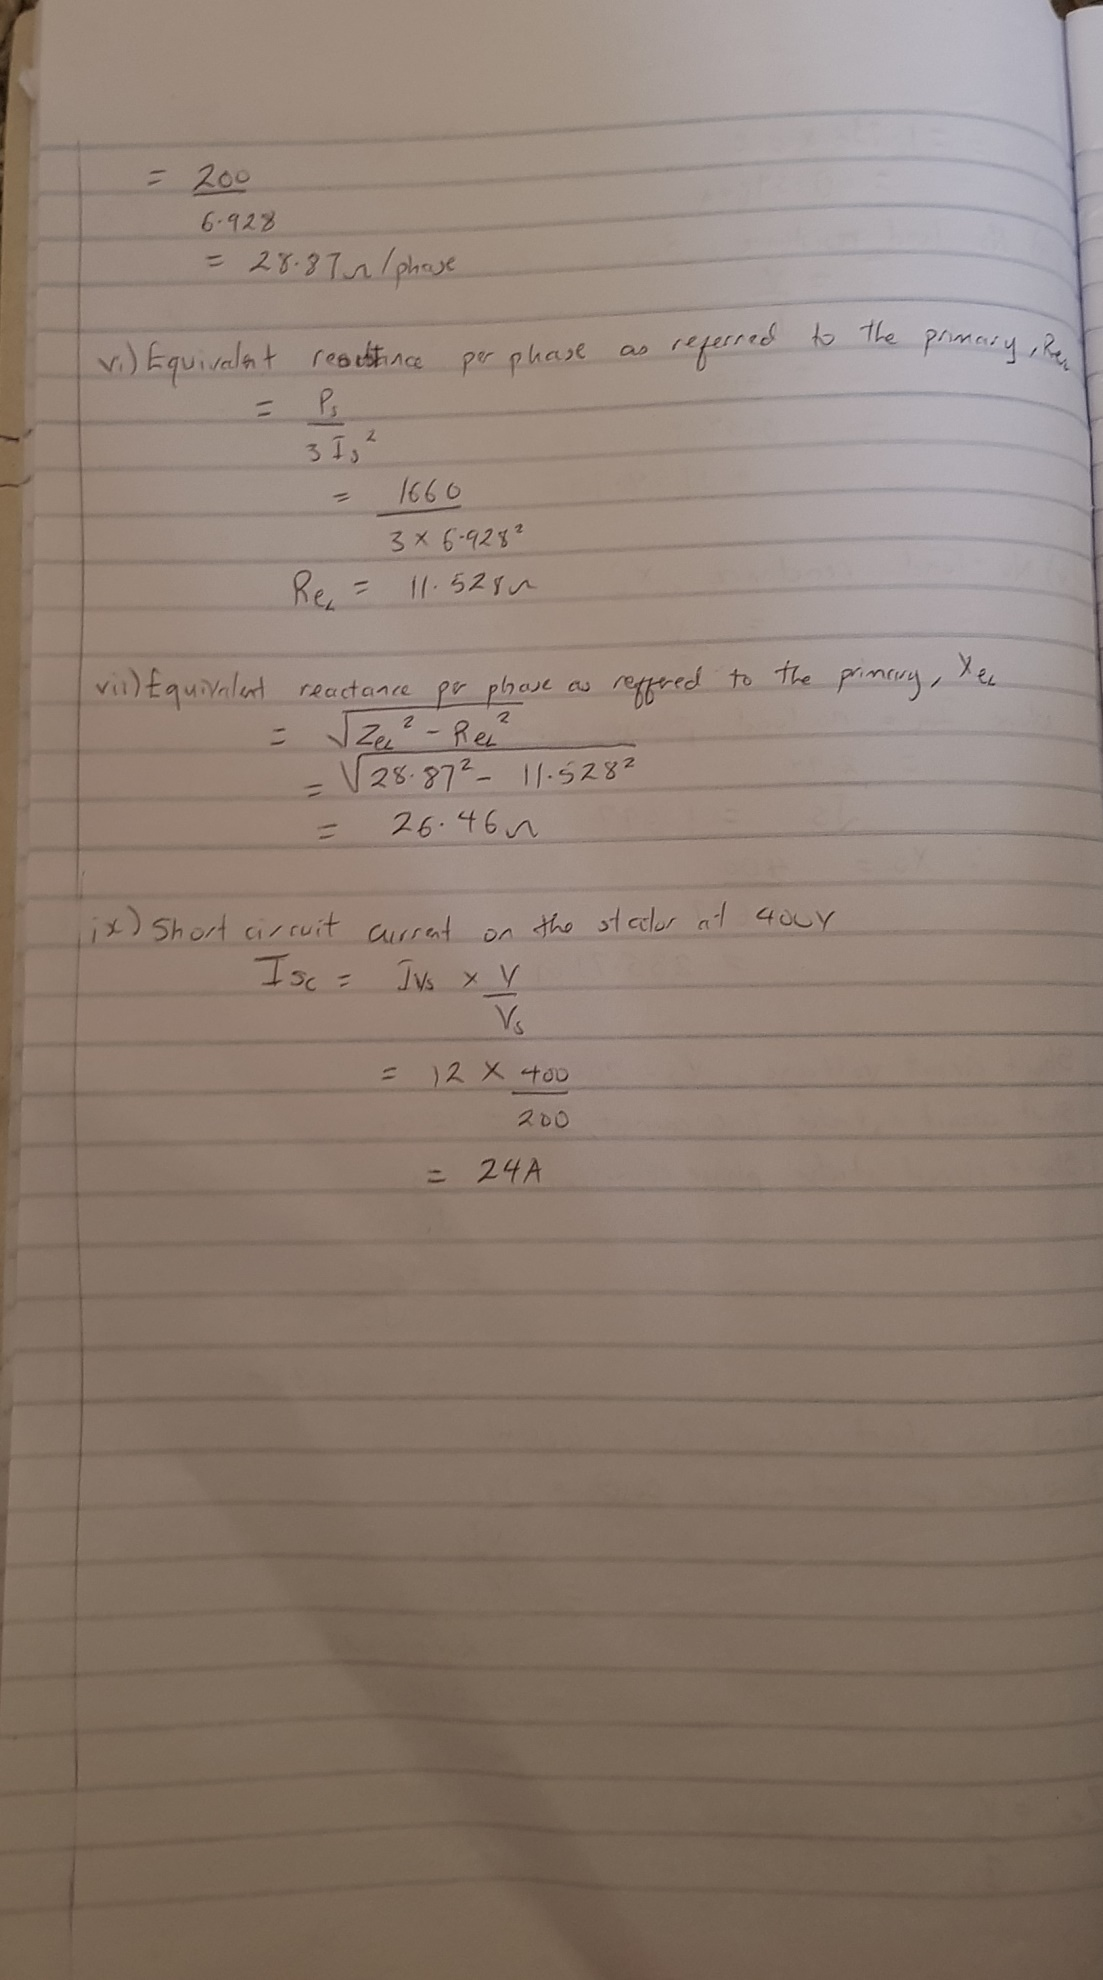 = 200
6.928
= 28.87Ω/phase
vi) Equivalent resistance per phase as referred to the primary, Re
= Ps
3 Is²
= 1660
3 × 6.928²
ReL = 11.528Ω
vii) Equivalent reactance per phase as reffered to the primary, XeL
= √ZeL² - ReL²
= √28.87² - 11.528²
= 26.46Ω
ix) Short circuit current on the stator at 400V
Isc = IVs × V
Vs
= 12 × 400
200
= 24A